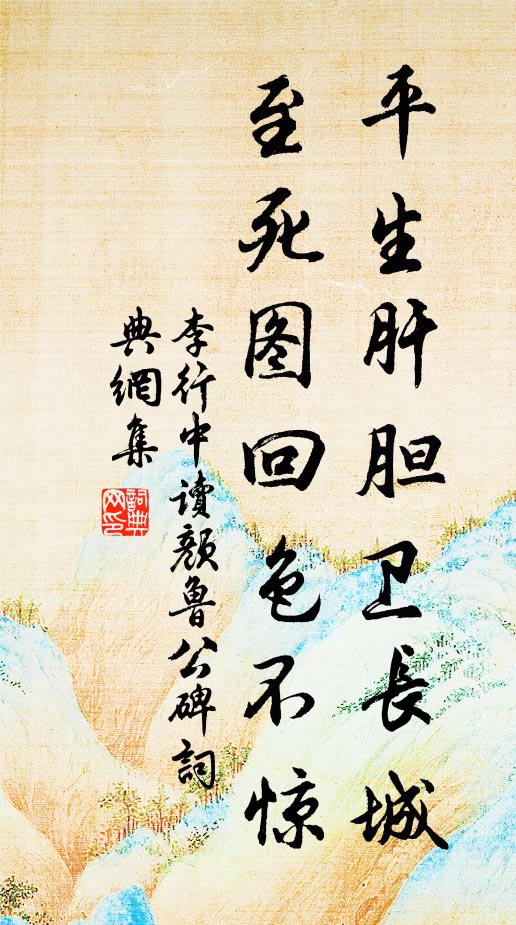 平生肝胆卫長城
至死图回色不惊
李行中讀顏魯公碑詞
典網集
詞典
网印